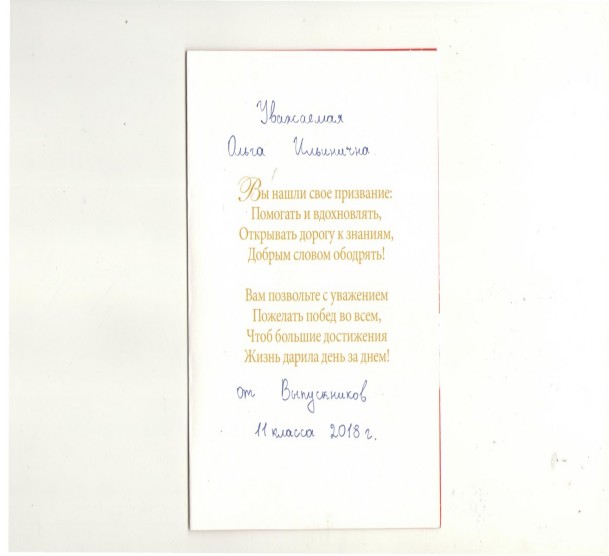 Уважаемая
Ольга Ильинична
Вы нашли свое призвание:
Помогать и вдохновлять,
Открывать дорогу к знаниям,
Добрым словом ободрять!
Вам позвольте с уважением
Пожелать побед во всем,
Чтоб большие достижения
Жизнь дарила день за днем!
от Выпускников
11 класса 2018 г.